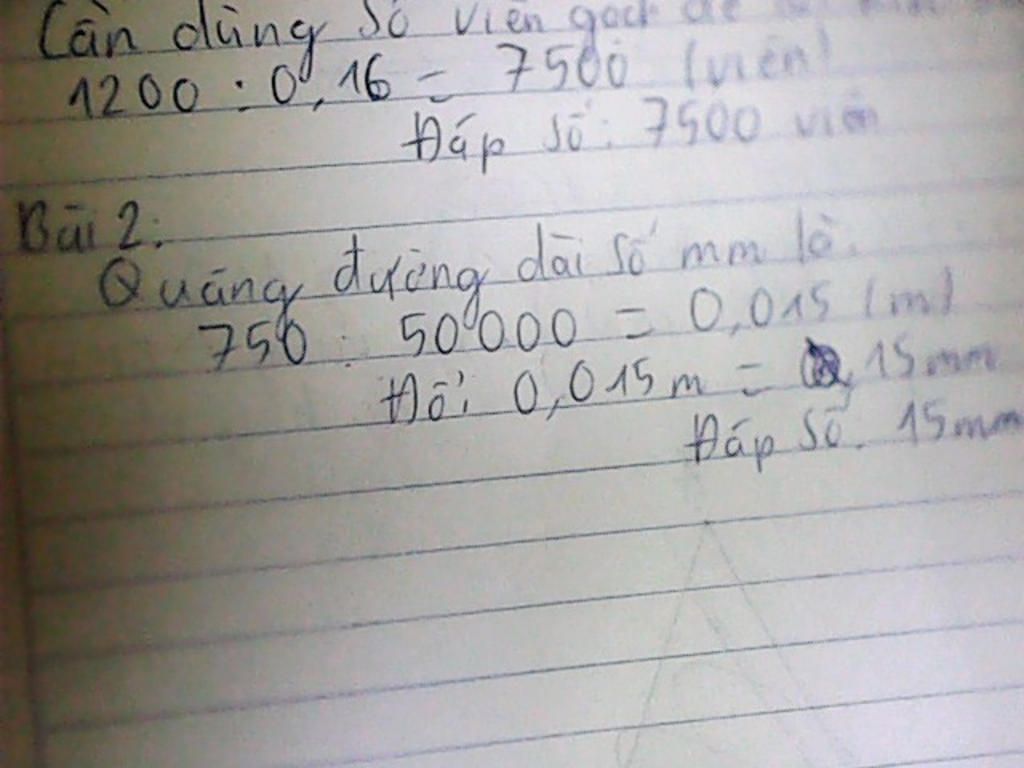 Cần dùng số viên gạch để
1200 : 0,16 = 7500 (viên)
Đáp số: 7500 viên
Bài 2:
Quãng đường dài số mm là:
750 : 50000 = 0,015 (m)
Đổi 0,015m = 15mm
Đáp số: 15mm